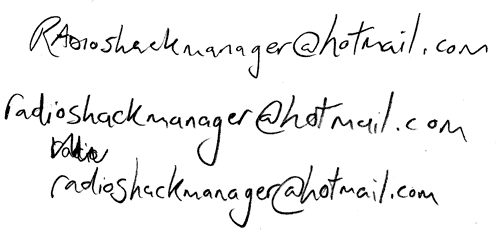 RADioshackmanager@hotmail.com
radioshackmanager@hotmail.com
radioshackmanager@hotmail.com